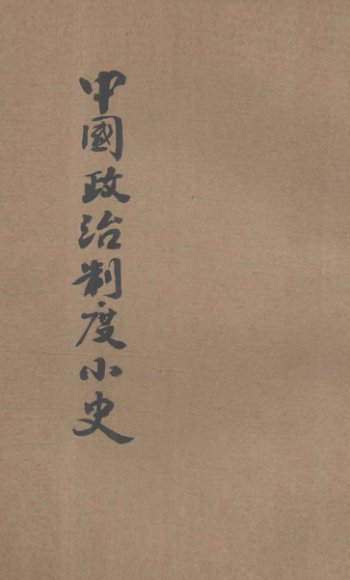 中國政治制度小史